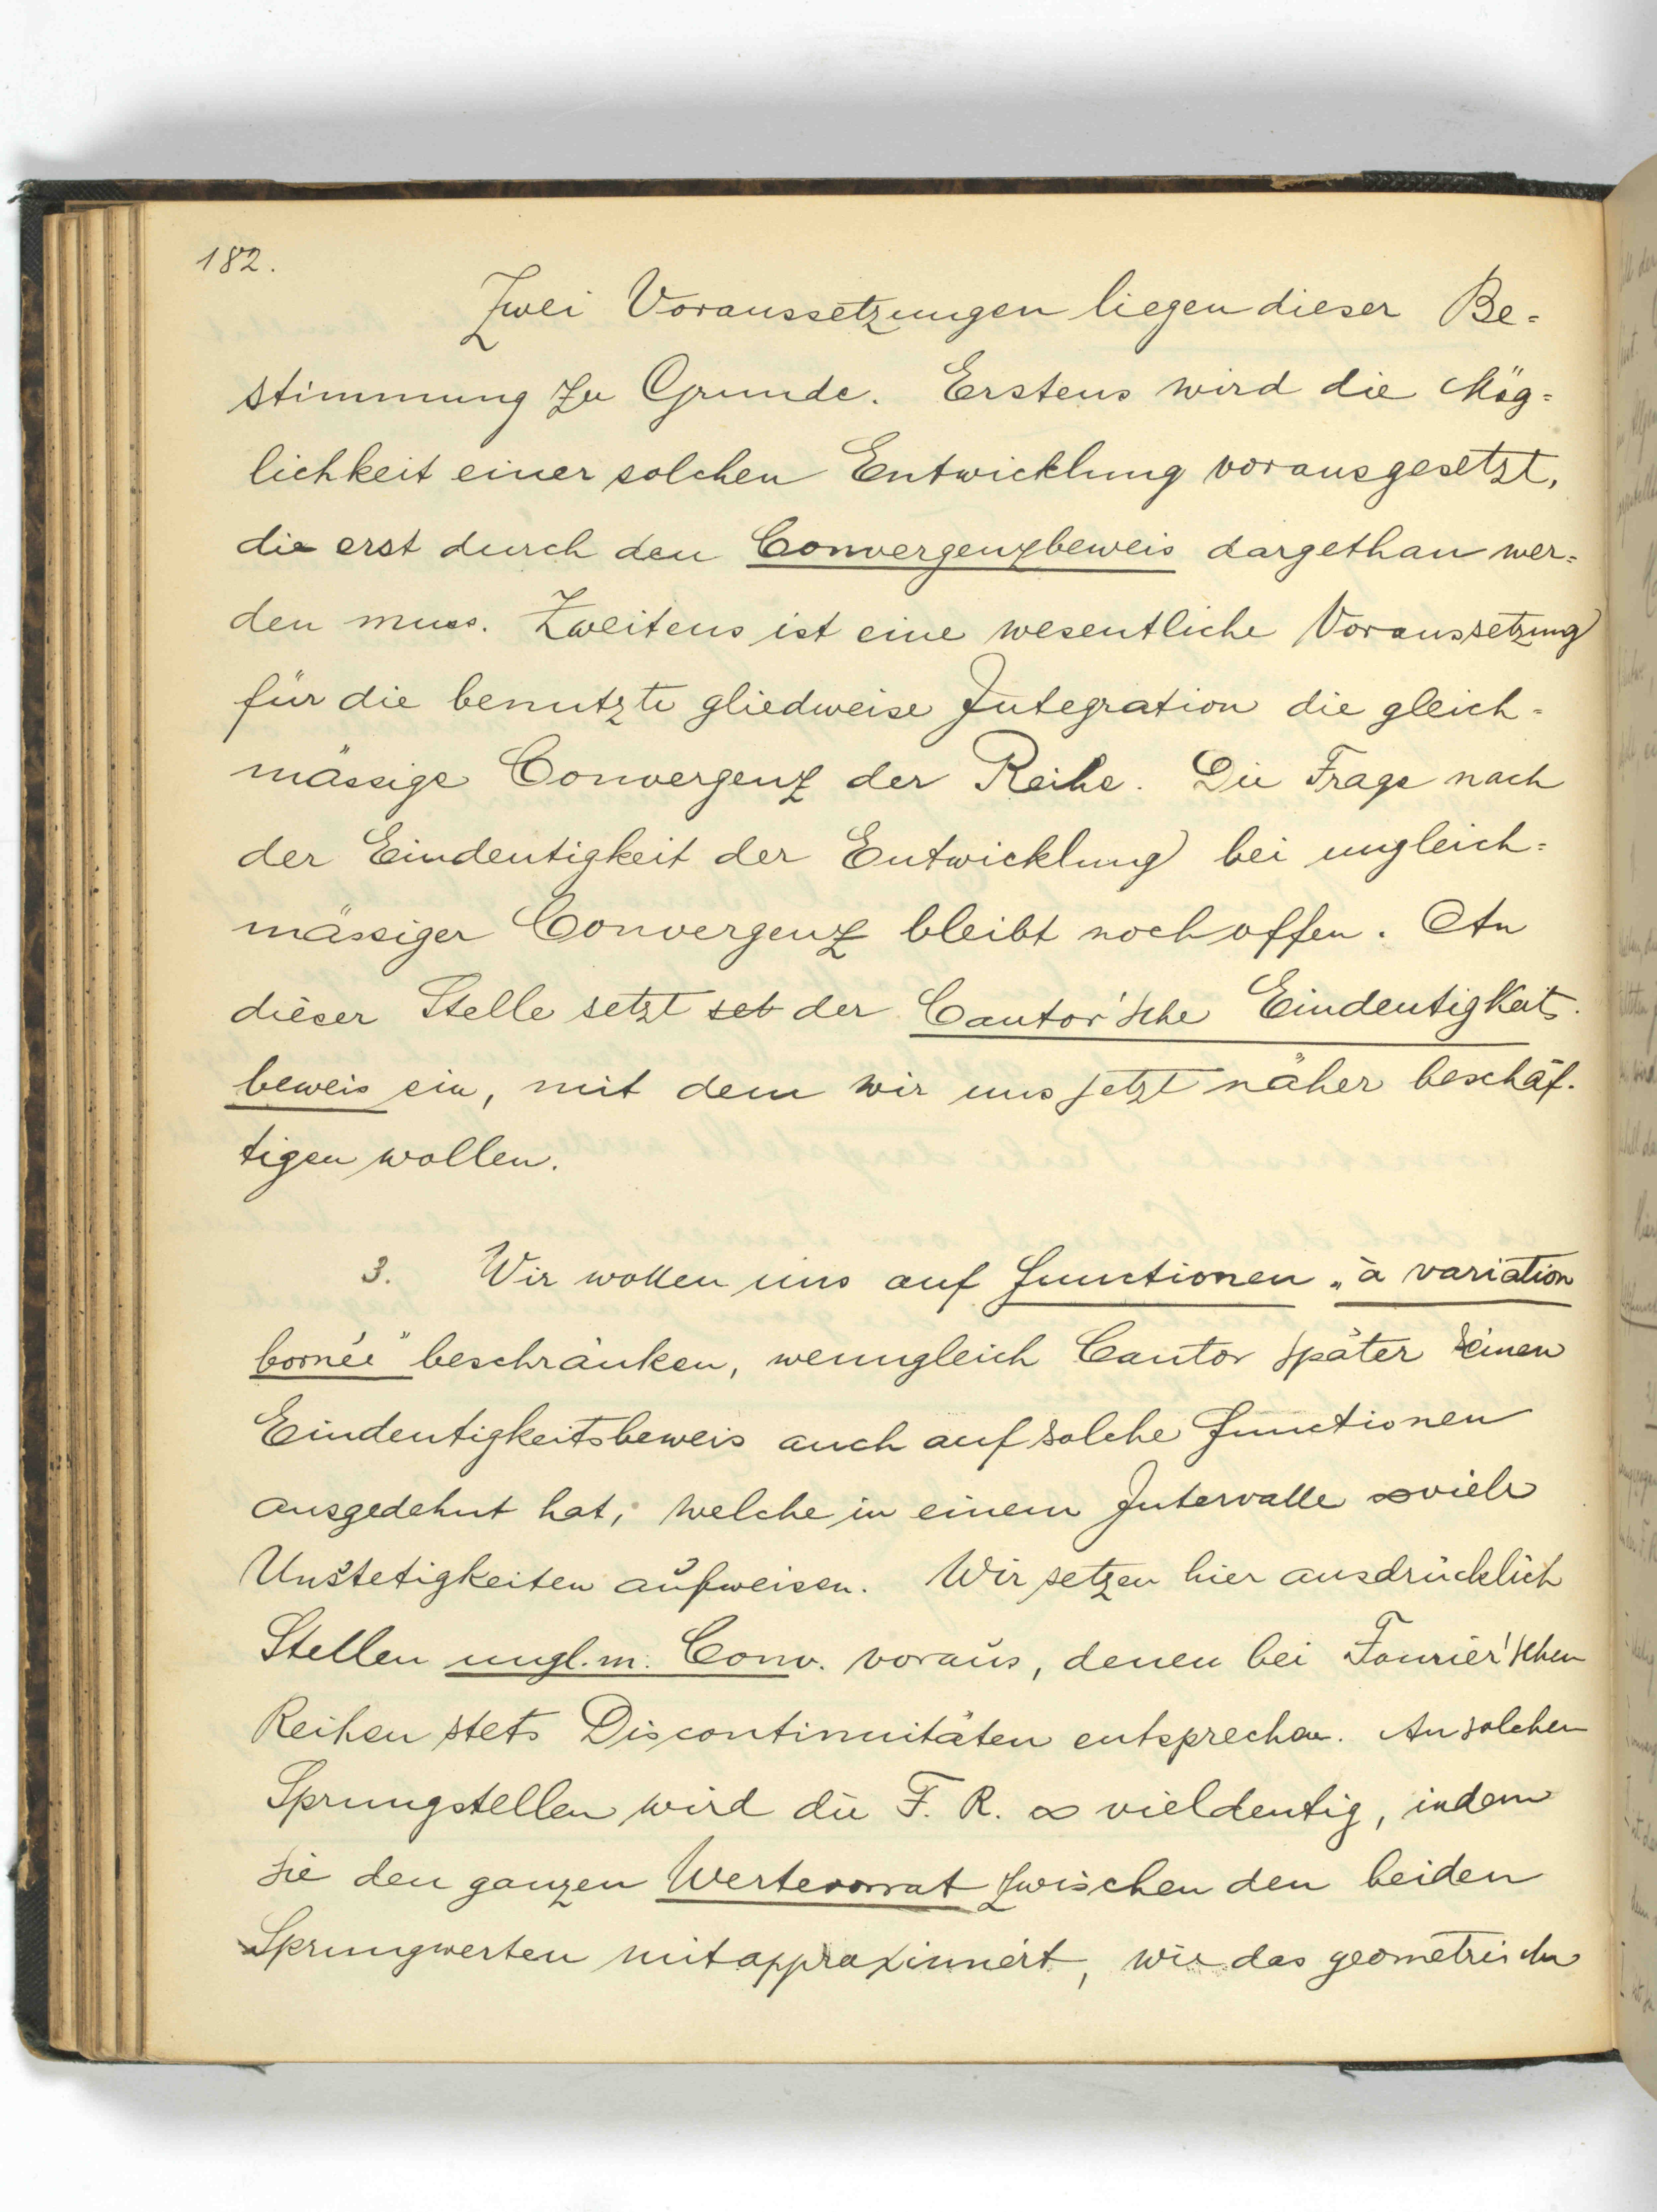 182.
Zwei Voraussetzungen liegen dieser Be=
stimmung zu Grunde. Erstens wird die Mög=
lichkeit einer solchen Entwicklung vorausgesetzt,
die erst durch den Convergenzbeweis dargethan wer=
den muss. Zweitens ist eine wesentliche Voraussetzung
für die benutzte gliedweise Integration die gleich=
mässige Convergenz der Reihe. Die Frage nach
der Eindeutigkeit der Entwicklung bei ungleich=
mässiger Convergenz bleibt noch offen. An
dieser Stelle setzt set der Cantor'sche Eindeutigkeits-
beweis ein, mit dem wir uns jetzt näher beschäf-
tigen wollen.
3. Wir wollen uns auf Functionen „à variation
bornée" beschränken, wenngleich Cantor später seinen
Eindeutigkeitsbeweis auch auf solche Functionen
ausgedehnt hat, welche in einem Intervalle ∞ viele
Unstetigkeiten aufweisen. Wir setzen hier ausdrücklich
Stellen ungl. m. Conv. voraus, denen bei Fourier'schen
Reihen stets Discontinuitäten entsprechen. An solchen
Sprungstellen wird die F. R. ∞ vieldeutig, indem
sie den ganzen Wertevorrat zwischen den beiden
Sprungwerten mitapproximiert, wie das geometrische